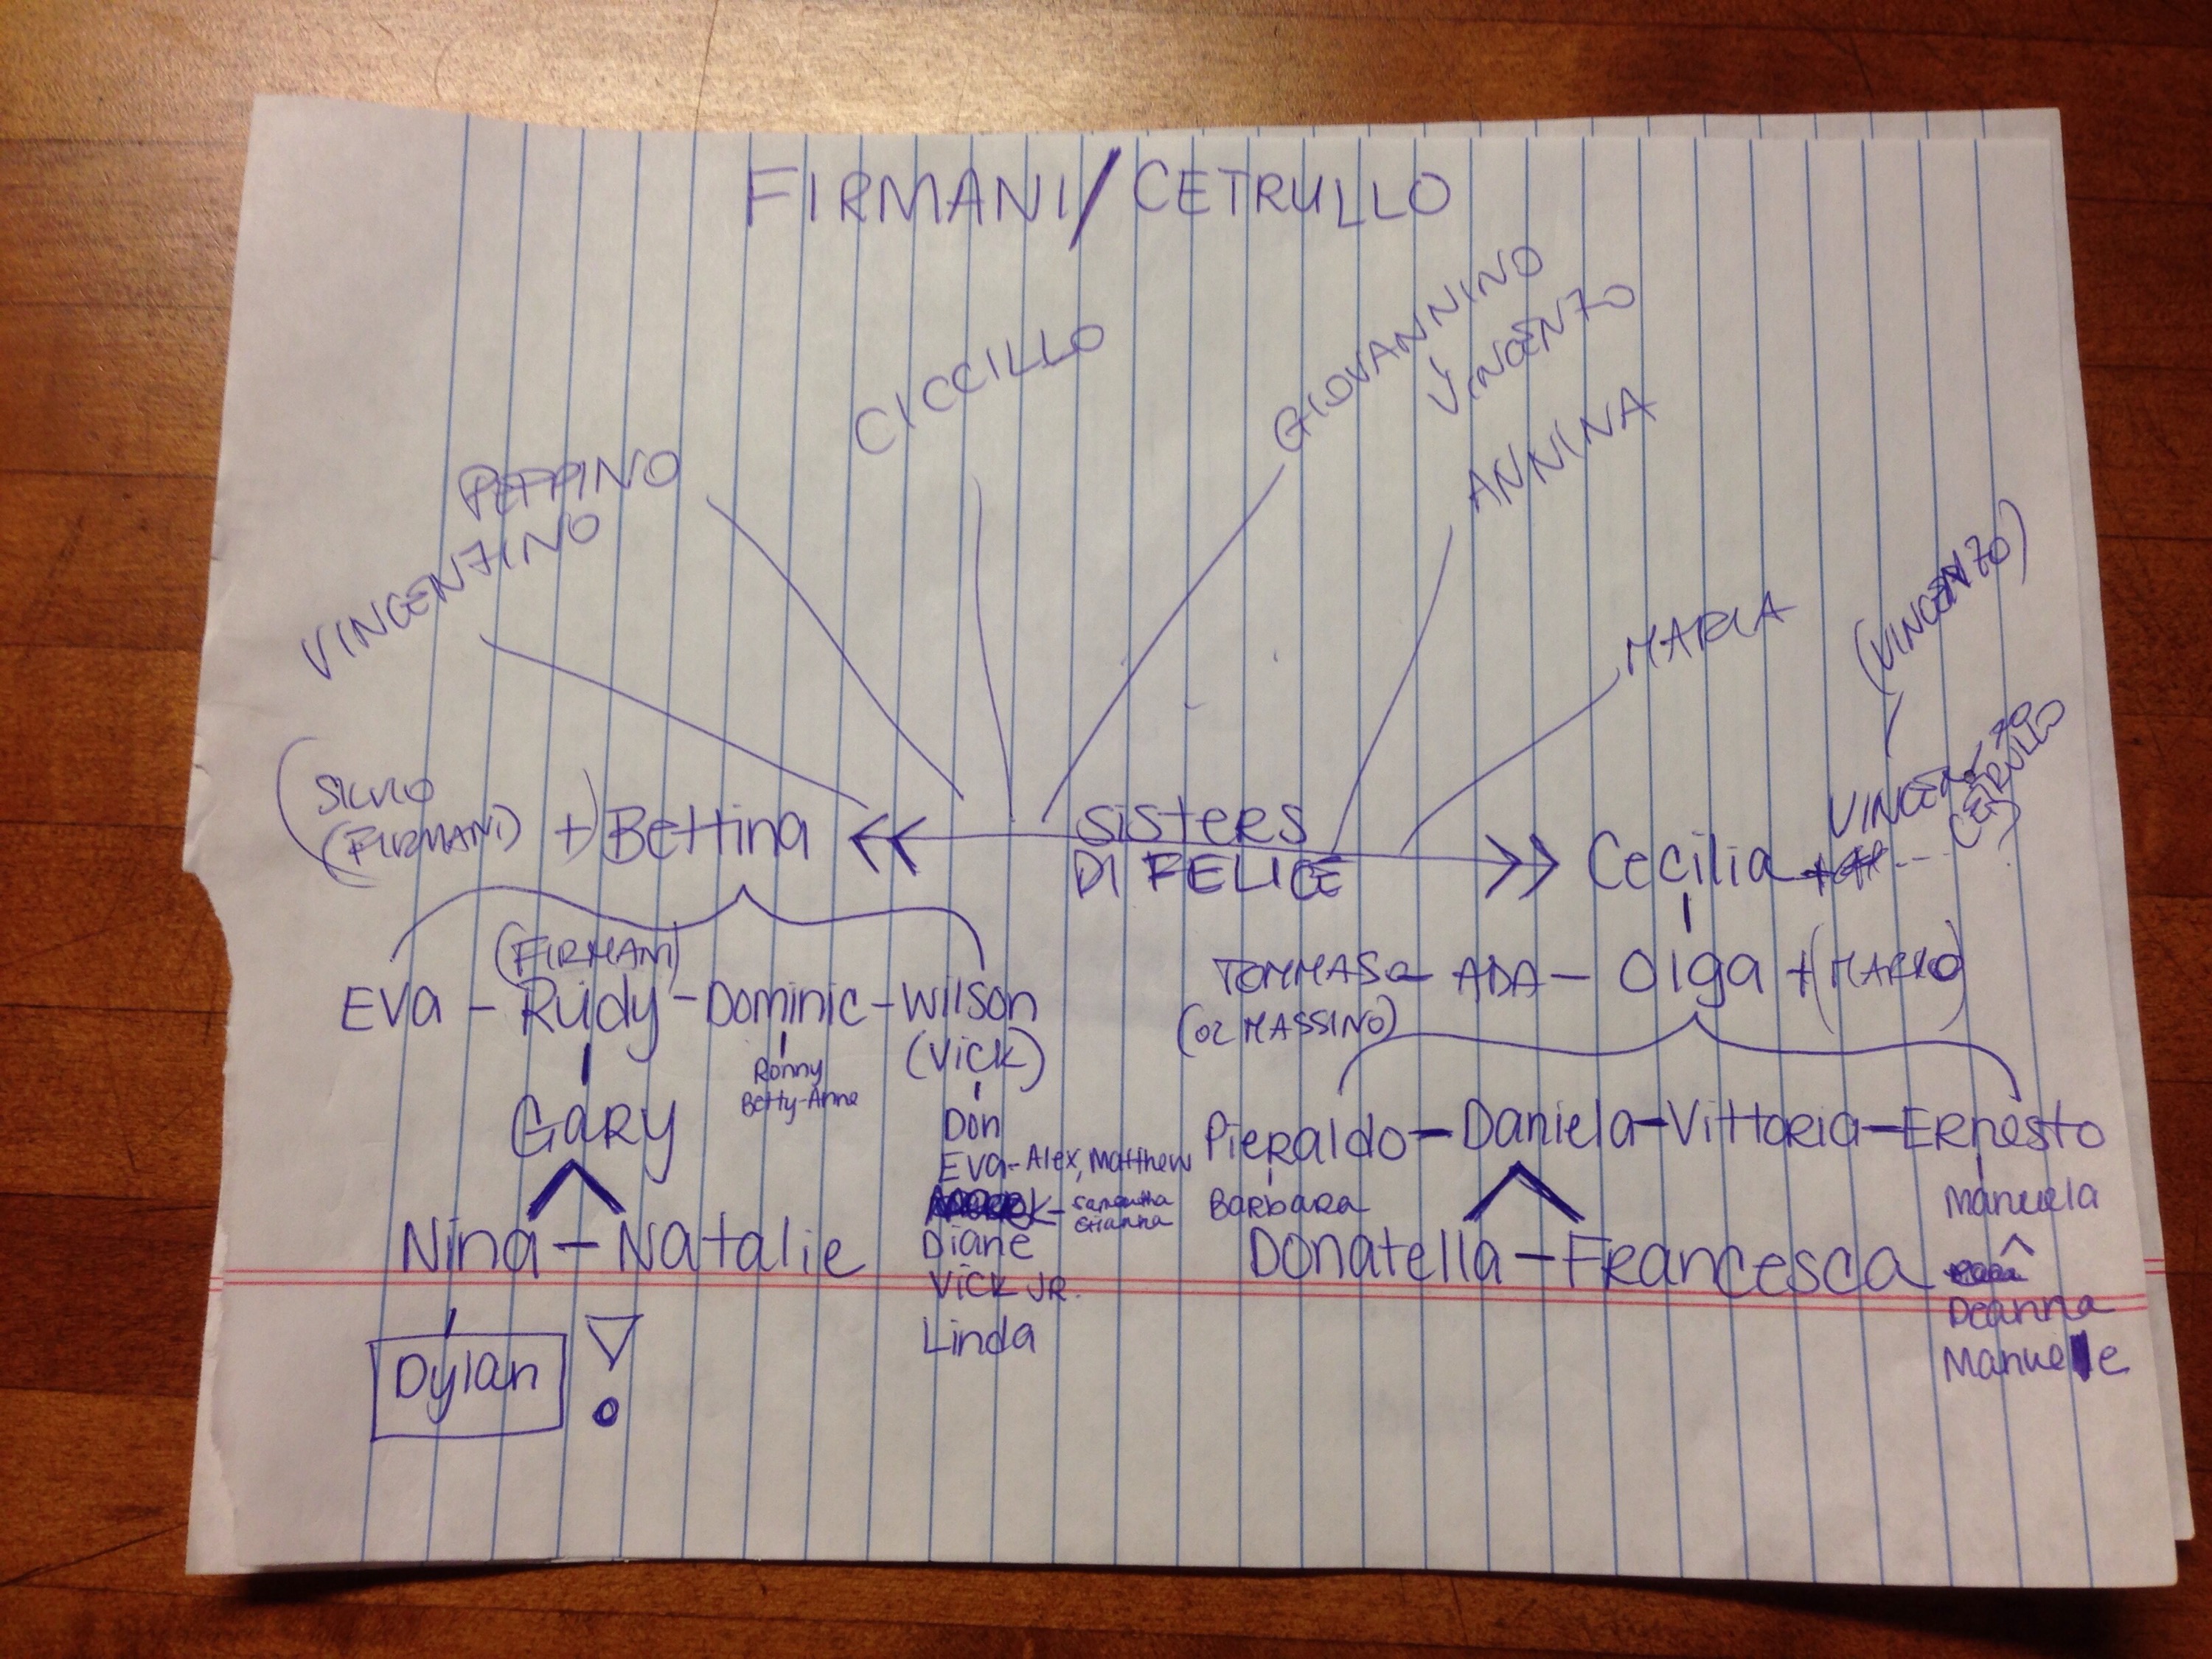 FIRMANI/CETRULLO
GIOVANNINO
VINCENZO
CICCILLO
ANNINA
PEPPINO
VINCENZINO
MARIA
(VINCENZO)
(SILVIO
(FIRMANI) +) Bettina
sisters
DI FELICE
Cecilia +
CETRULLO
(FIRMANI)
Eva - Rudy - Dominic - Wilson
(Vick)
TOMMASO - ADA - Olga + (MARIO)
(OR MASSINO)
Gary
Ronny
Betty-Anne
Don
Eva - Alex, Matthew
Samantha
Gianna
Diane
Vick JR.
Linda
Pieraldo - Daniela - Vittoria - Ernesto
Barbara
Manuela
Nina - Natalie
Donatella - Francesca
Deanna
Manuele
Dylan !